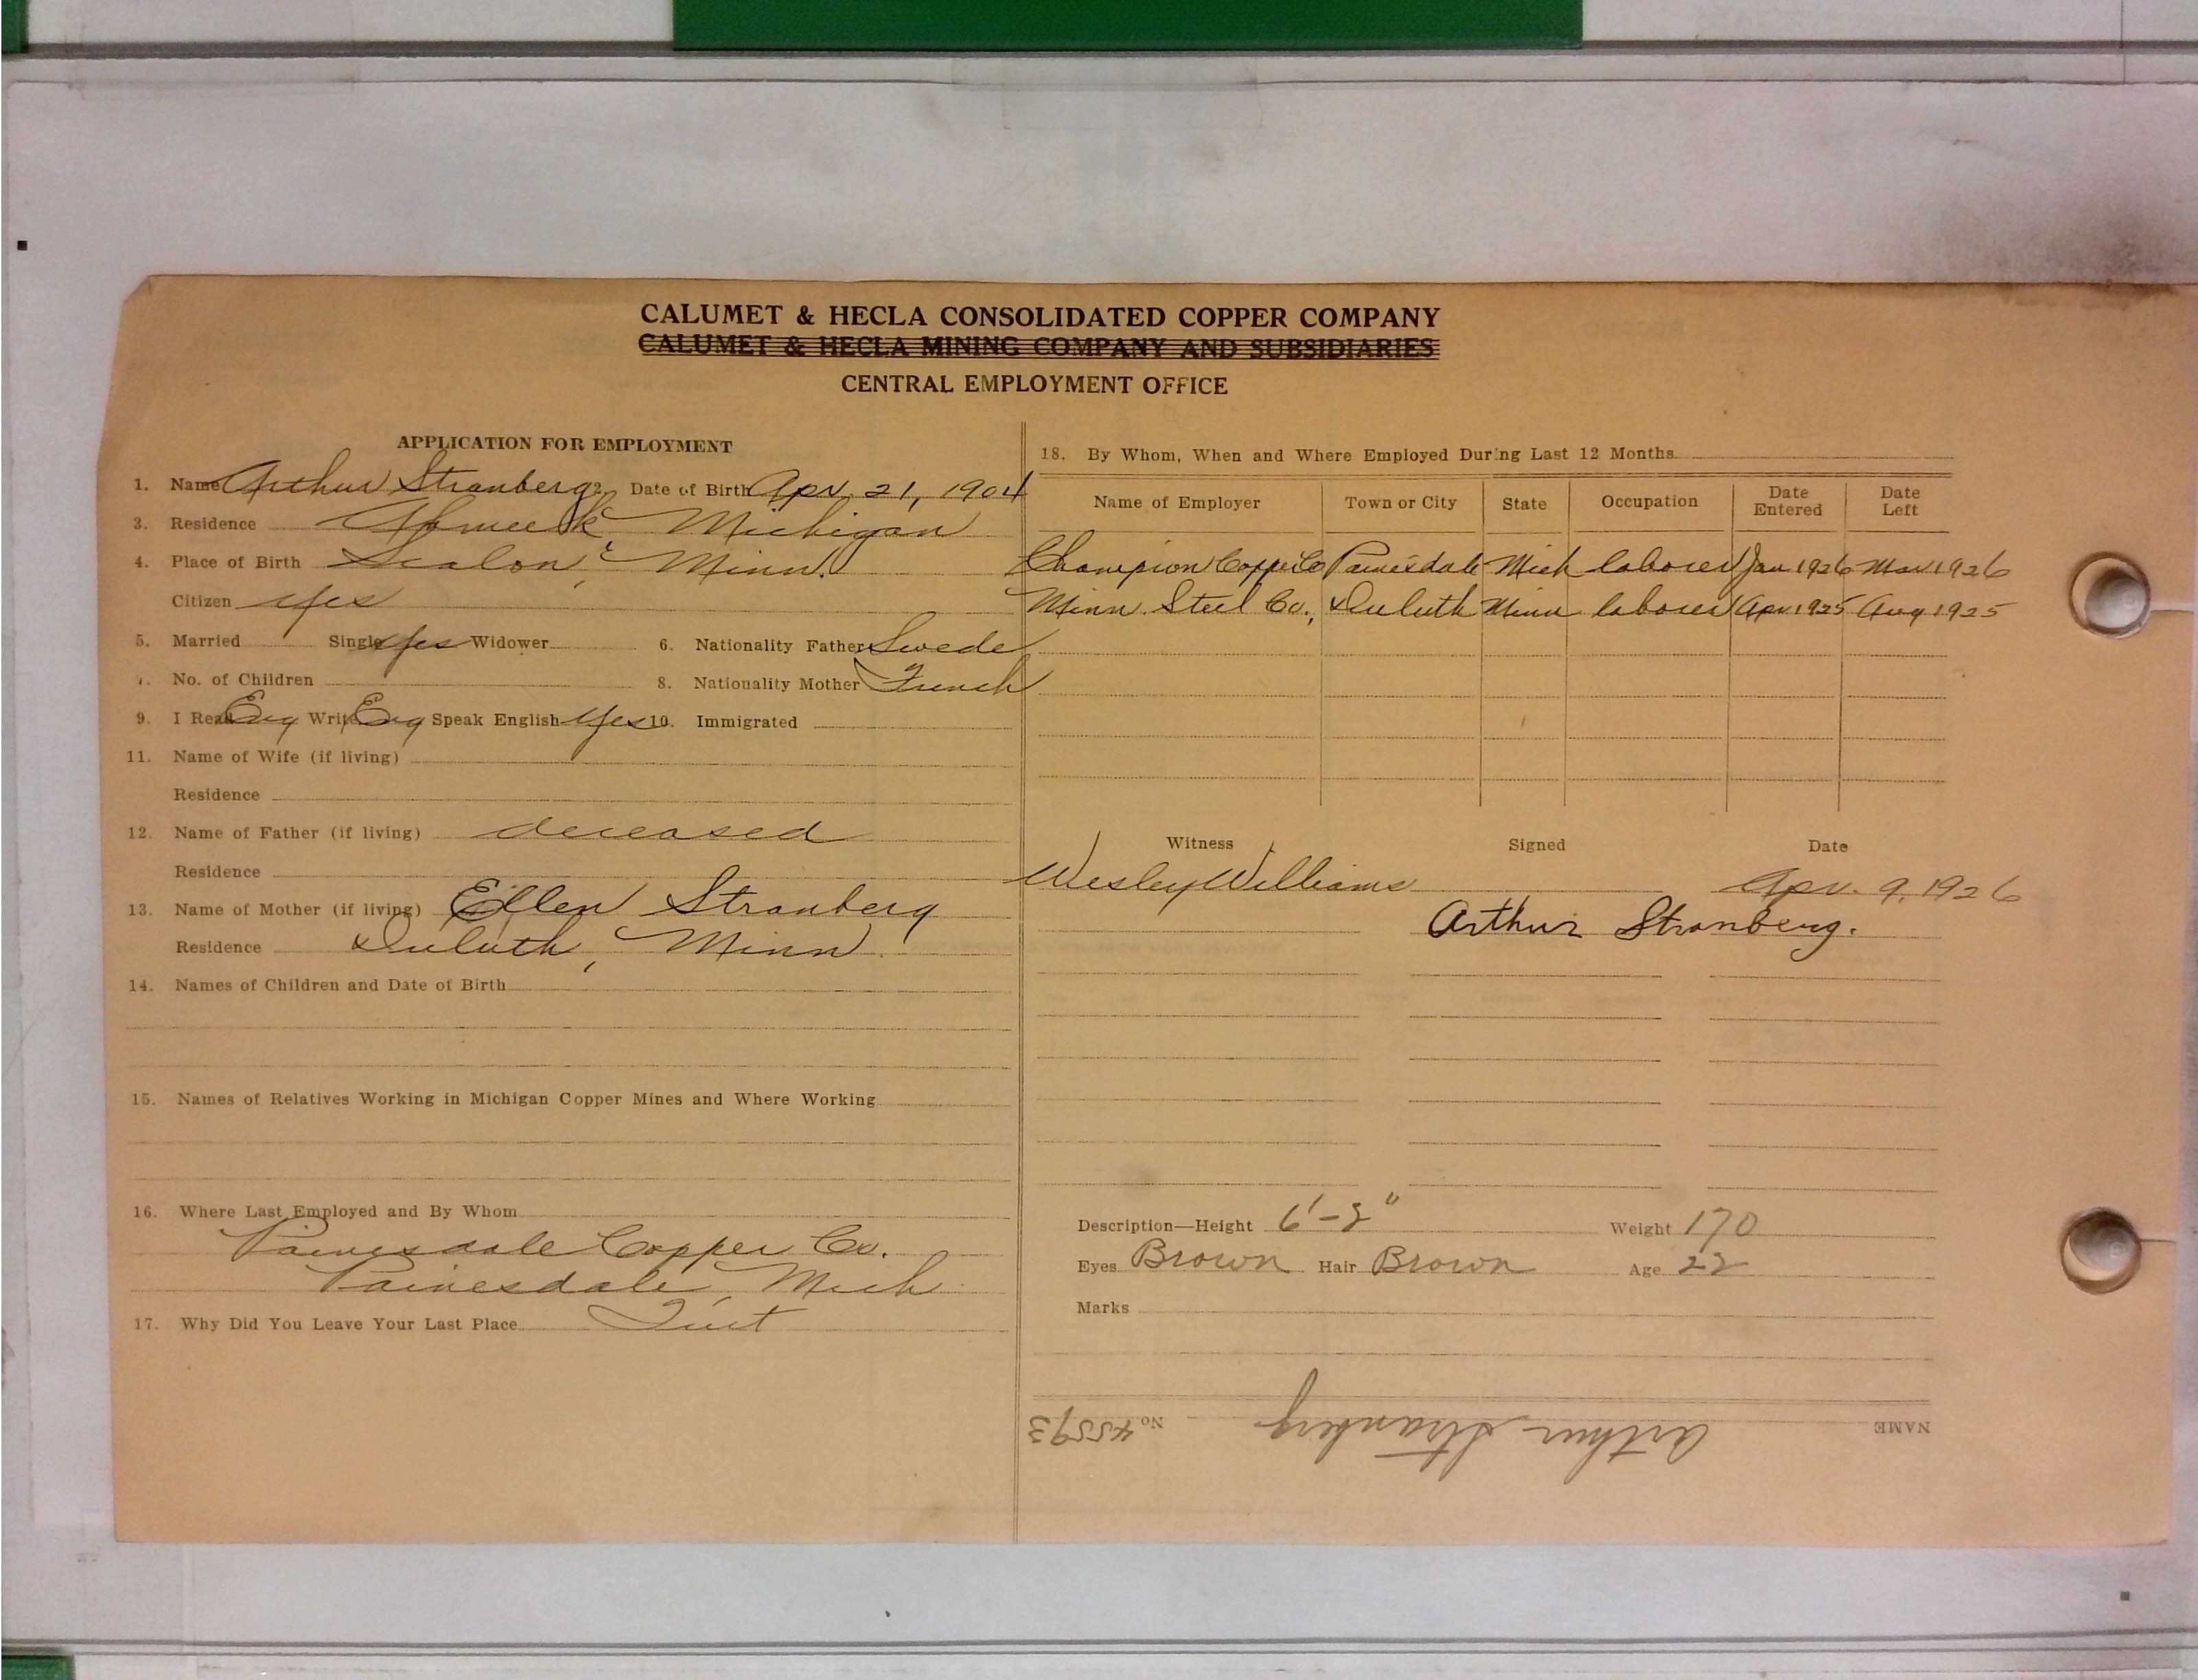 CALUMET & HECLA CONSOLIDATED COPPER COMPANY
CALUMET & HECLA MINING COMPANY AND SUBSIDIARIES
CENTRAL EMPLOYMENT OFFICE
APPLICATION FOR EMPLOYMENT
1. Name Arthur Stranberg 2. Date of Birth Apr. 21, 1904
3. Residence Ahmeek, Michigan
4. Place of Birth Scalon, Minn.
Citizen yes
5. Married Single yes Widower 6. Nationality Father Swede
7. No. of Children 8. Nationality Mother French
9. I Read Eng Write Eng Speak English yes 10. Immigrated
11. Name of Wife (if living)
Residence
12. Name of Father (if living) deceased
Residence
13. Name of Mother (if living) Ellen Stranberg
Residence Duluth, Minn.
14. Names of Children and Date of Birth
15. Names of Relatives Working in Michigan Copper Mines and Where Working
16. Where Last Employed and By Whom
Painesdale Copper Co.
Painesdale, Mich
17. Why Did You Leave Your Last Place Quit
18. By Whom, When and Where Employed During Last 12 Months
Name of Employer Town or City State Occupation Date Entered Date Left
Champion Copper Co Painesdale Mich laborer Jan 1926 Mar 1926
Minn. Steel Co., Duluth Minn laborer Apr 1925 Aug 1925
Witness Signed Date
Wesley Williams Apr. 9, 1926
Arthur Stranberg.
Description—Height 6'-2" Weight 170
Eyes Brown Hair Brown Age 22
Marks
NAME Arthur Stranberg No. 45593